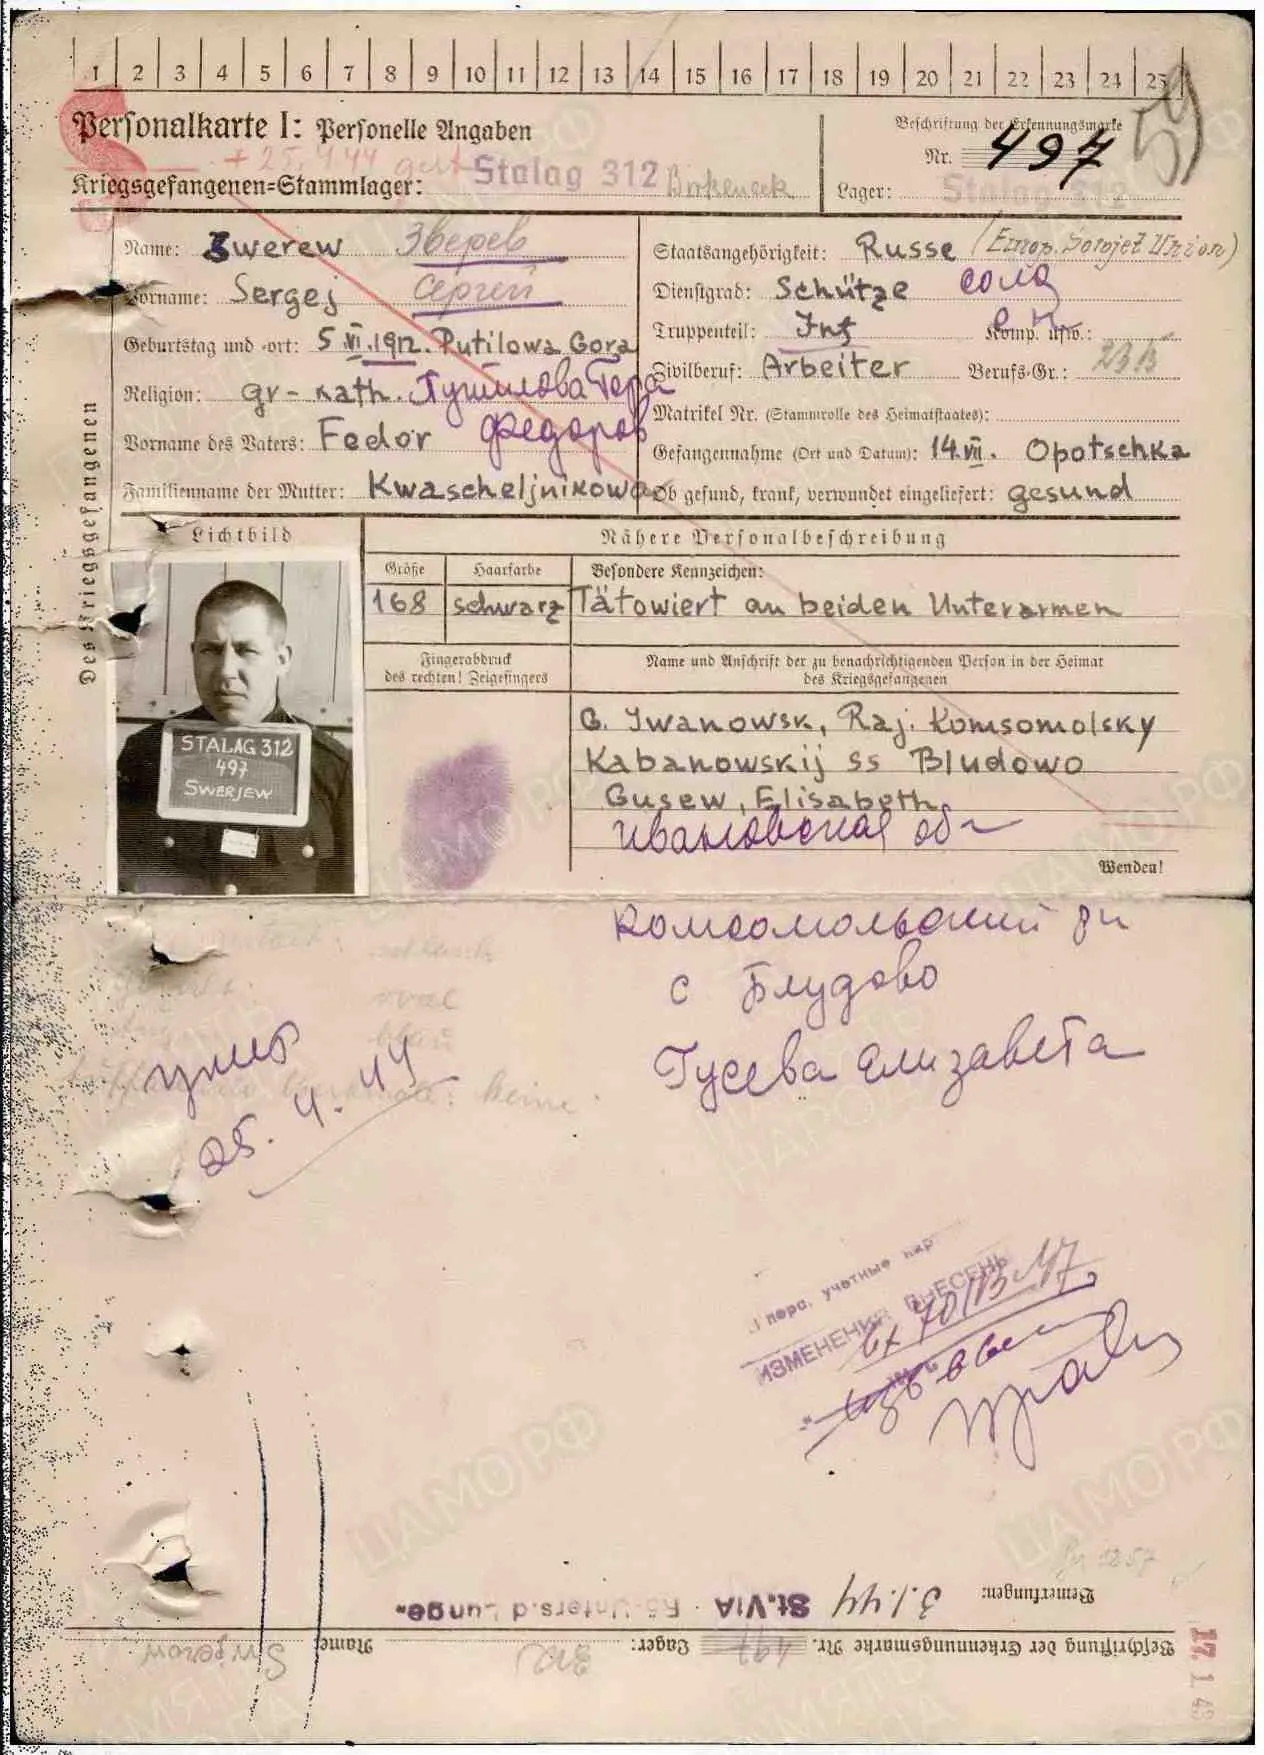 1 2 3 4 5 6 7 8 9 10 11 12 13 14 15 16 17 18 19 20 21 22 23 24 25
59
Personalkarte I: Personelle Angaben
Beschriftung der Erkennungsmarke
+ 25.4.44 gest
Nr. 497
Kriegsgefangenen=Stammlager: Stalag 312
Lager: Stalag 312
Name: Swerew Зверев
Vorname: Sergej Сергей
Geburtstag und =ort: 5.VI.1912. Putilowa Gora
Religion: gr-kath. Путилова Гора
Vorname des Vaters: Fedor Федоров
Familienname der Mutter: Kwascheljnikowa
Staatsangehörigkeit: Russe (Europ. Sowjet Union)
Dienstgrad: Schütze солд
Truppenteil: Inf Komp. usw.:
Zivilberuf: Arbeiter Berufs=Gr.: 23B
Matrikel Nr. (Stammrolle des Heimatstaates):
Gefangennahme (Ort und Datum): 14.VII. Opotschka
Ob gesund, krank, verwundet eingeliefert: gesund
Des Kriegsgefangenen
Lichtbild
Nähere Personalbeschreibung
Größe
Haarfarbe
Besondere Kennzeichen:
168
schwarz
Tätowiert an beiden Unterarmen
Fingerabdruck
des rechten! Zeigefingers
Name und Anschrift der zu benachrichtigenden Person in der Heimat
des Kriegsgefangenen
STALAG 312
497
SWERJEW
G. Iwanowsk, Raj. Komsomolsky
Kabanowskij ss Bludowo
Gusew, Elisabeth
Ивановская об
Wenden!
Комсомольский рн
с Блудово
Гусева Елизавета
oval
keine
умер
25.4.44
учетные
ИЗМЕНЕНИЯ ВНЕСЕНЫ
Bemerkungen: 3.1.44 St.VIA Rö-Unters.d.Lunge-
Beschriftung der Erkennungsmarke Nr. 497 Lager: 312 Name: Swjerow
17. 1. 43